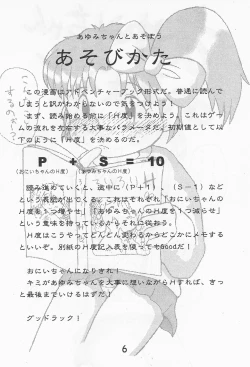 あゆみちゃんとあそぼう
あそびかた
この漫画はアドベンチャーブック形式だ。普通に読んで
しまうと訳がわからないので気をつけよう！
まず、読み始める前に「H度」を決めよう。これはゲー
ムの流れを左右する大事なパラメータだ。初期値として以
下のように「H度」を決めるのだ。
P + S = 10
(おにいちゃんのH度) (あゆみちゃんのH度)
読み進めていくと、途中に（P＋1）、（S－1）など
という表現が出てくる。これはそれぞれ「おにいちゃんの
H度を1つ増やせ」「あゆみちゃんのH度を1つ減らせ」
という意味を持っているからそれに従おう。
H度はこうやってどんどん変わるからどこかにメモする
といいぞ。別紙のH度記入表を使ってもGood だ！
おにいちゃんになりきれ！
キミがあゆみちゃんを大事に想いながらHすれば、きっ
と最後までいけるはずだ！
グッドラック！
6